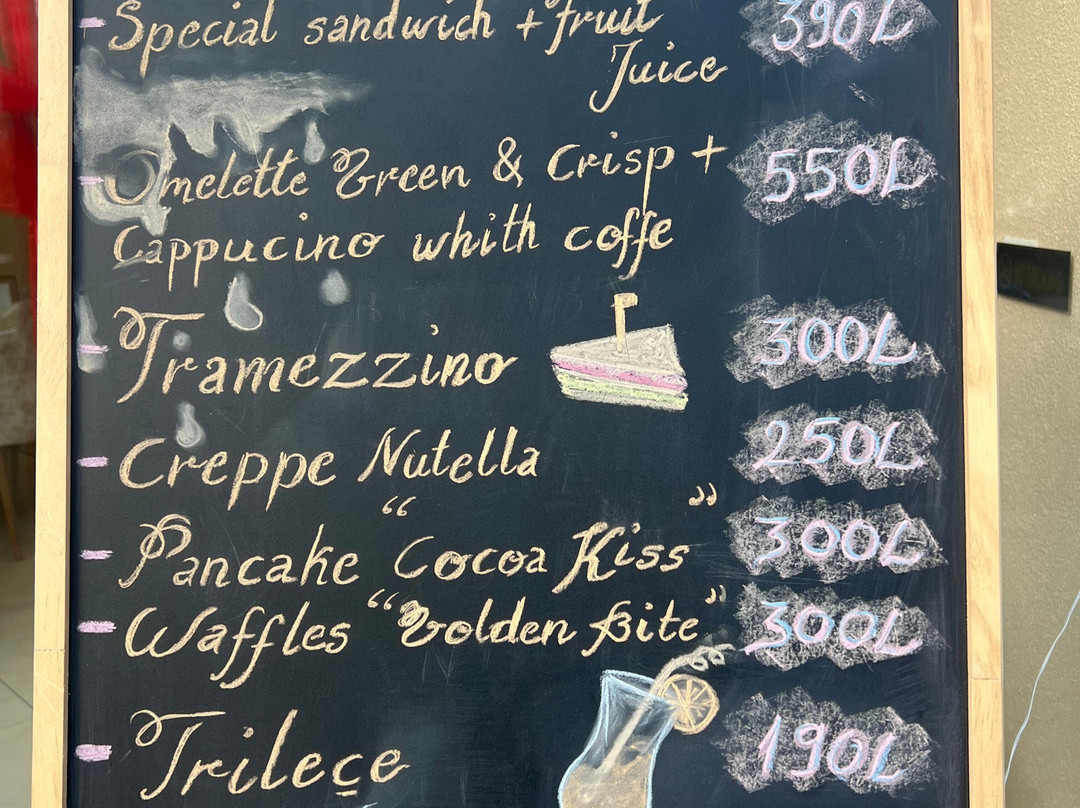 - Special sandwich + fruit 390L
Juice
- Omelette Green & Crisp + 550L
Cappucino whith coffe
- Tramezzino 300L
- Creppe Nutella 250L
- Pancake “Cocoa Kiss” 300L
- Waffles “Golden Bite” 300L
- Trileçe 190L